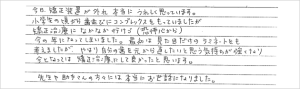 今日 矯正装置が外れ 本当に うれしく思っています。
小学生の頃から 歯並びにコンプレックスをもっていましたが
矯正治療に なかなか行けず（恐怖心から）
今の年になってしまいました。最初は 見た目だけの ラミネートも
考えましたが、やはり自分の歯を元から直したいと思う気持ちが強くなり
今となっては 矯正治療にして良かったと思います。
先生や助手さんの方々には 本当にお世話になりました。